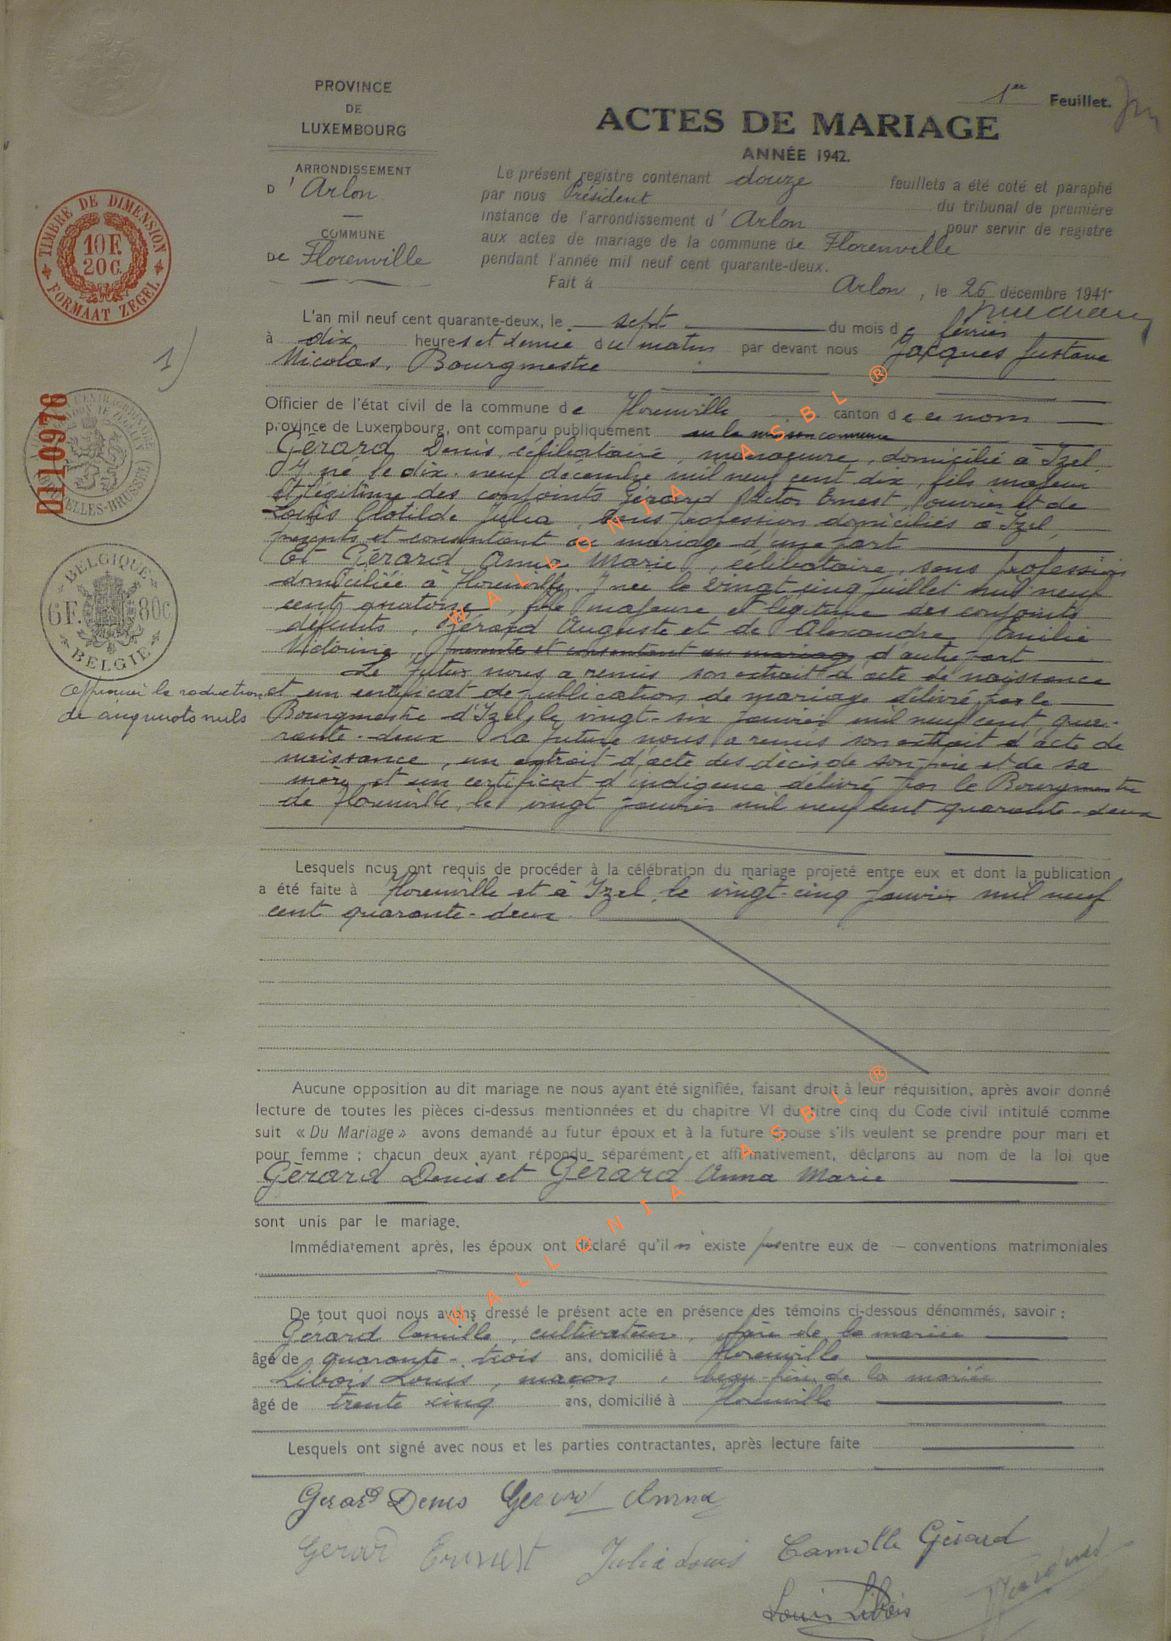 1er Feuillet.
PROVINCE
DE
LUXEMBOURG
ACTES DE MARIAGE
ANNÉE 1942.
ARRONDISSEMENT
D'Arlon
COMMUNE
DE Florenville
Le présent registre contenant douze feuillets a été coté et paraphé
par nous Président du tribunal de première
instance de l'arrondissement d'Arlon, pour servir de registre
aux actes de mariage de la commune de Florenville
pendant l'année mil neuf cent quarante-deux.
Fait à Arlon, le 26 décembre 1941
TIMBRE DE DIMENSION
10 F.
20 C.
FORMAAT ZEGEL
1)
D110978
BELGIQUE
6F. 80C
BELGIE
L'an mil neuf cent quarante-deux, le sept du mois de février
à dix heures et demie du matin par devant nous Jacques Gustave
Nicolas, Bourgmestre
Officier de l'état civil de la commune de Florenville canton de ce nom
province de Luxembourg, ont comparu publiquement en la maison commune
Gérard Denis, célibataire, manoeuvre, domicilié à Izel,
Y né le dix-neuf décembre mil neuf cent dix, fils majeur
et légitime des conjoints Gérard Victor Ernest, ouvrier et de
Louis Clotilde Julia, sans profession domiciliés à Izel,
présents et consentant au mariage d'une part
Et Gérard Anna Marie, célibataire, sans profession
domiciliée à Florenville, Y née le vingt cinq juillet mil neuf
cent quatorze, fille majeure et légitime des conjoints
défunts, Gérard Auguste et de Alexandre Amélie
présente et consentant au mariage d'autre part
Le futur nous a remis son extrait d'acte de naissance
et un certificat de publication de mariage délivré par le
Bourgmestre d'Izel, le vingt-six janvier mil neuf cent qua-
rante-deux La future nous a remis son extrait d'acte de
naissance, un extrait d'acte des décès de son père et de sa
mère et un certificat d'indigence délivré par le Bourgmestre
de Florenville, le vingt janvier mil neuf cent quarante-deux
de cinq mots nuls
Lesquels nous ont requis de procéder à la célébration du mariage projeté entre eux et dont la publication
a été faite à Florenville et à Izel, le vingt-cinq janvier mil neuf
cent quarante-deux.
Aucune opposition au dit mariage ne nous ayant été signifiée, faisant droit à leur réquisition, après avoir donné
lecture de toutes les pièces ci-dessus mentionnées et du chapitre VI du titre cinq du Code civil intitulé comme
suit « Du Mariage » avons demandé au futur époux et à la future épouse s'ils veulent se prendre pour mari et
pour femme ; chacun deux ayant répondu séparément et affirmativement, déclarons au nom de la loi que
Gérard Denis et Gérard Anna Marie
sont unis par le mariage.
Immédiatement après, les époux ont déclaré qu'il n'existe pas entre eux de — conventions matrimoniales
De tout quoi nous avons dressé le présent acte en présence des témoins ci-dessous dénommés, savoir :
Gérard Camille, cultivateur, frère de la mariée
âgé de quarante-trois ans, domicilié à Florenville
Libois Louis, maçon, beau-frère de la mariée
âgé de trente cinq ans, domicilié à Florenville
Lesquels ont signé avec nous et les parties contractantes, après lecture faite
Gerard Denis Gerard Anna
Gerard Ernest Julia Louis Camille Gérard
Louis Libois
WALLONIA ASBL ®
WALLONIA ASBL ®